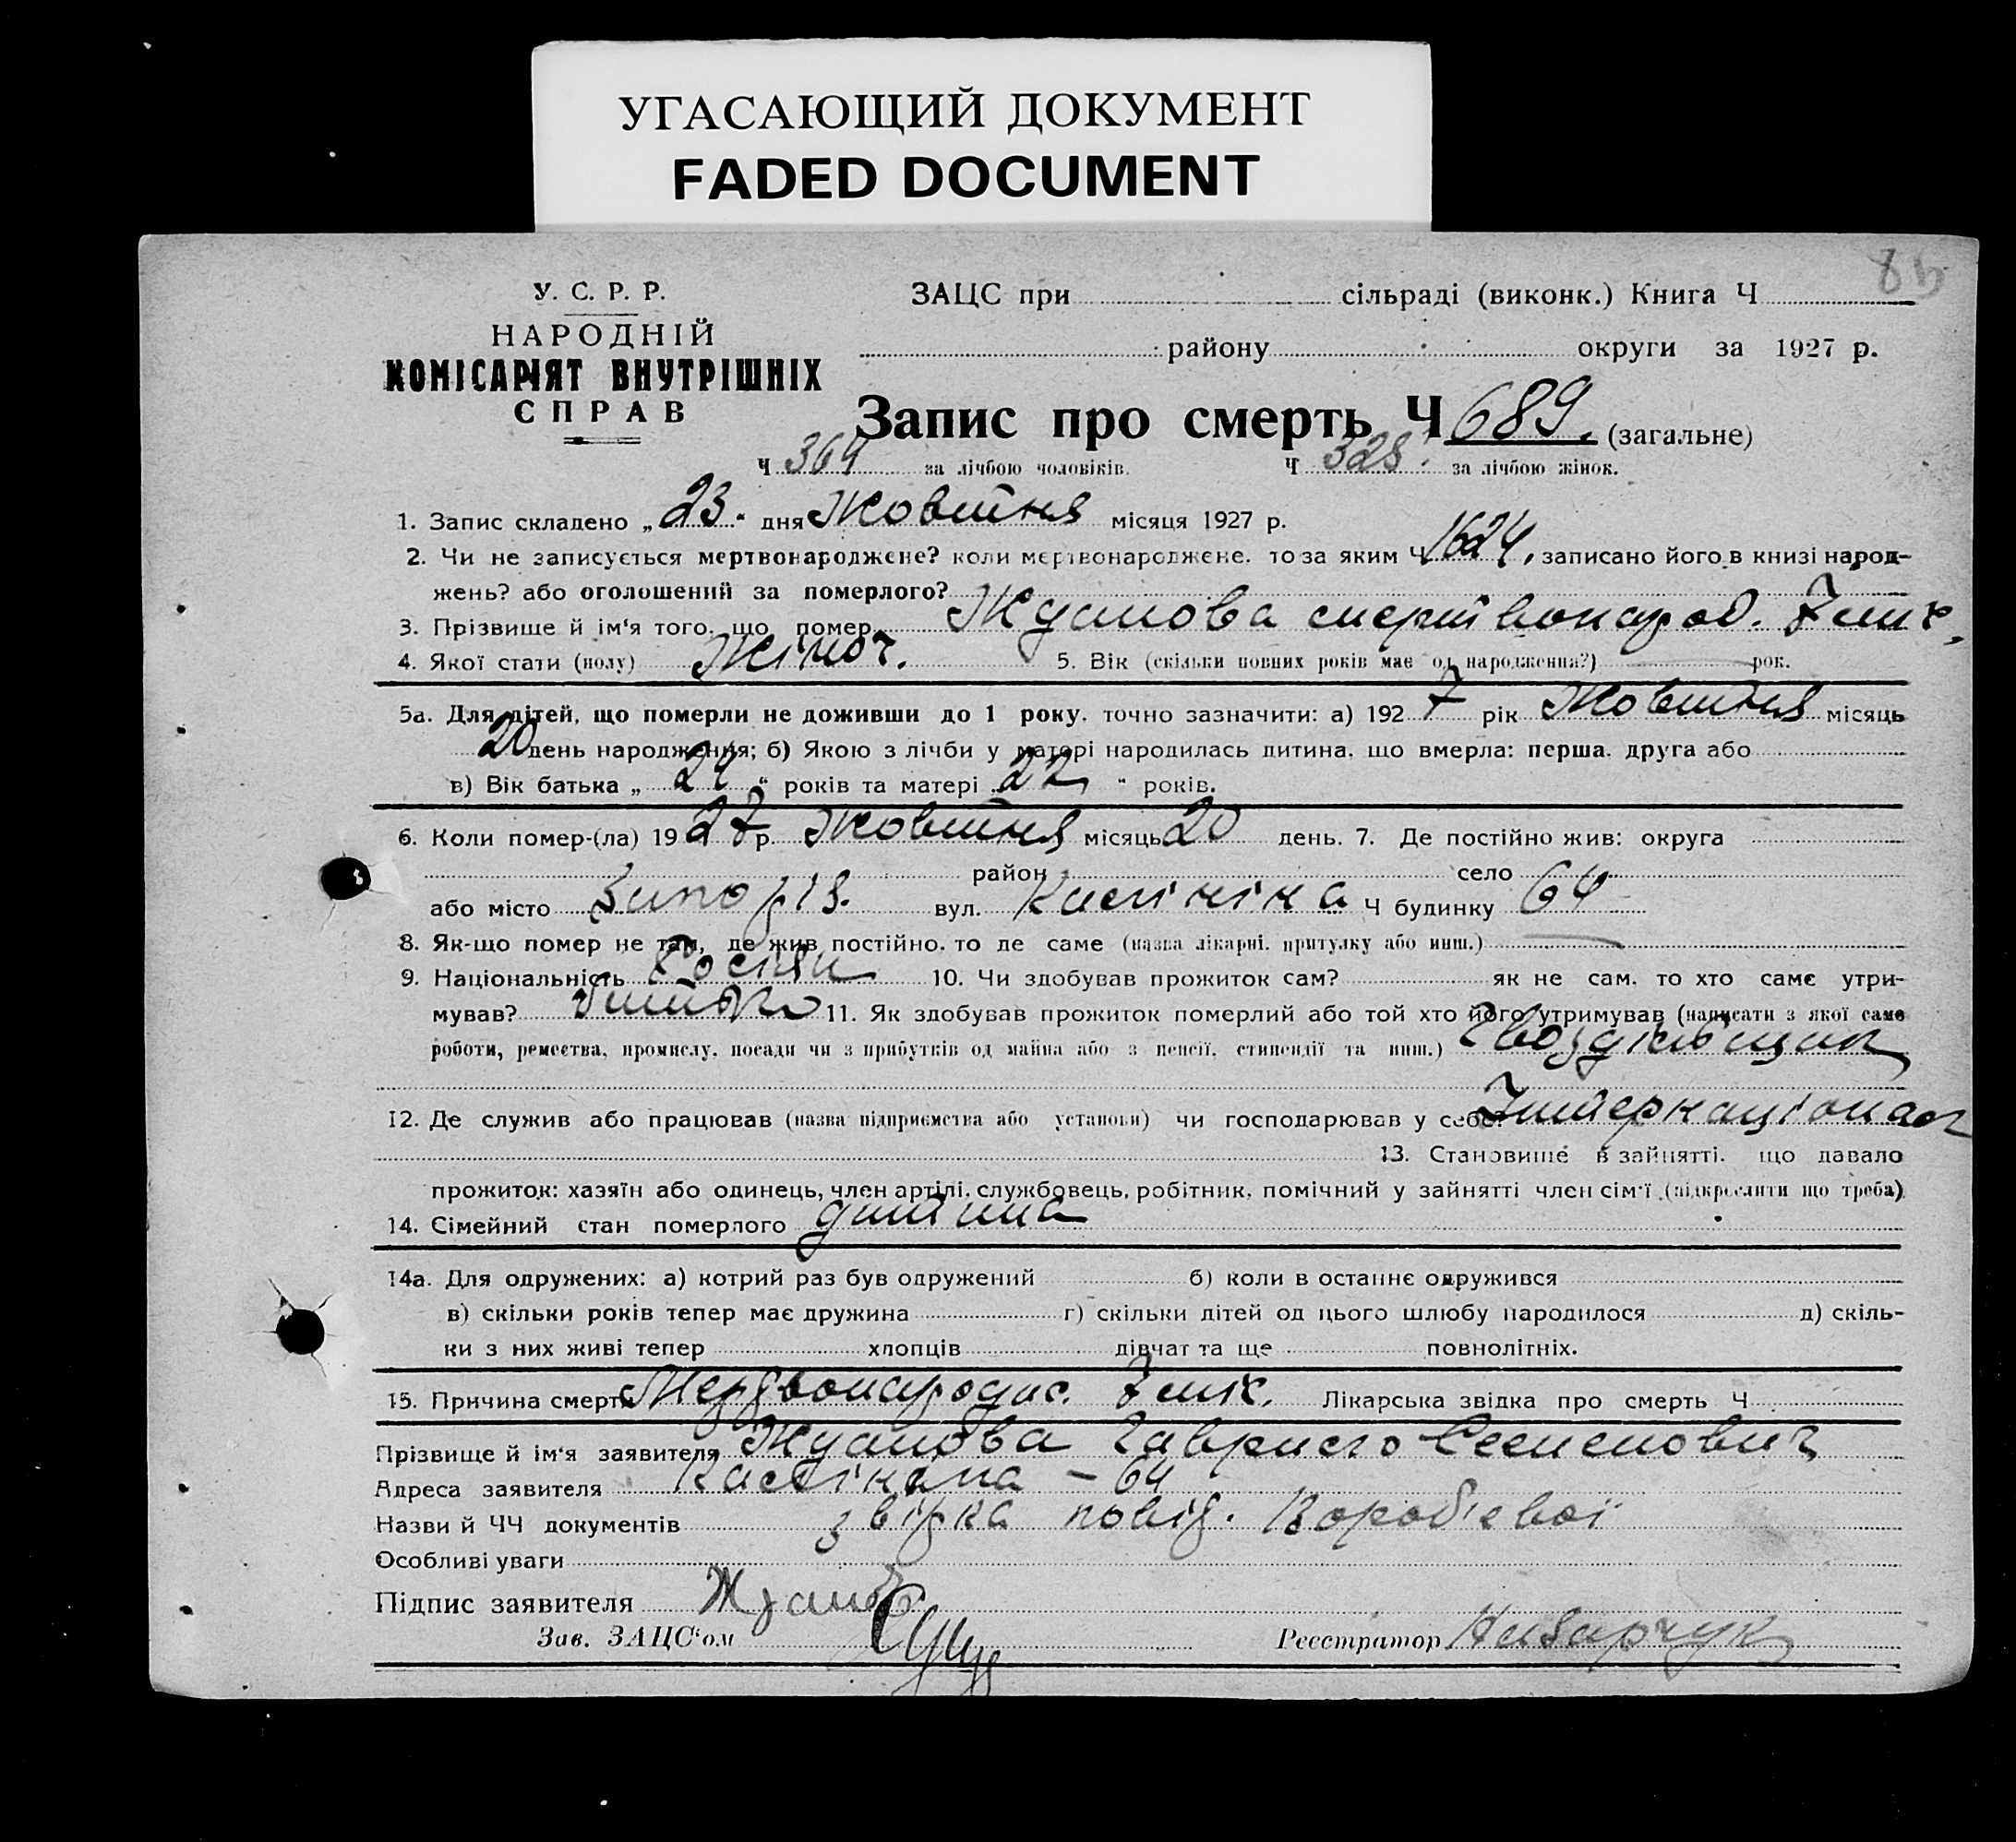 УГАСАЮЩИЙ ДОКУМЕНТ
FADED DOCUMENT
У. С. Р. Р.
НАРОДНІЙ
КОМІСАРІЯТ ВНУТРІШНІХ
СПРАВ
ЗАЦС при сільраді (виконк.) Книга Ч
району округи за 1927 р.
Запис про смерть Ч 689. (загальне)
Ч 364 за лічбою чоловіків. Ч 328. за лічбою жінок.
1. Запис складено „23." дня Жовтня місяця 1927 р.
2. Чи не записується мертвонароджене? коли мертвонароджене, то за яким Ч 1624, записано його в книзі народ-
жень? або оголошений за померлого?
3. Прізвище й ім'я того, що помер Жданова
4. Якої стати (полу) Жіноч. 5. Вік (скільки повних років має од народження?) рок.
5а. Для дітей, що померли не доживши до 1 року, точно зазначити: а) 1927 рік Жовтня місяць
20 день народження; б) Якою з лічби у матері народилась дитина, що вмерла: перша, друга або
в) Вік батька „24" років та матері „22" років.
6. Коли помер-(ла) 1927 р. Жовтня місяць 20 день. 7. Де постійно жив: округа
район село
або місто Запоріз. вул. Калініна Ч будинку 64
8. Як-що помер не там, де жив постійно, то де саме (назва лікарні, притулку або инш.)
9. Національність 10. Чи здобував прожиток сам? як не сам, то хто саме утри-
мував? 11. Як здобував прожиток померлий або той хто його утримував (написати з якої саме
роботи, ремества, промислу, посади чи з прибутків од майна або з пенсії, стипендії та инш.)
12. Де служив або працював (назва підприємства або установи) чи господарював у себе? Інтернаціонал
13. Становище в зайнятті, що давало
прожиток: хазяїн або одинець, член артілі, службовець, робітник, помічний у зайнятті член сім'ї (підкреслити що треба)
14. Сімейний стан померлого дитина
14а. Для одружених: а) котрий раз був одружений б) коли в останнє одружився
в) скільки років тепер має дружина г) скільки дітей од цього шлюбу народилося д) скіль-
ки з них живі тепер хлопців дівчат та ще повнолітніх.
15. Причина смерти Лікарська звідка про смерть Ч
Прізвище й ім'я заявителя Жданова Гаврило Семенович
Адреса заявителя Калініна – 64
Назви й ЧЧ документів звірка повід. Вороб'євої
Особливі уваги
Підпис заявителя Жданов
Зав. ЗАЦС'ом Реєстратор